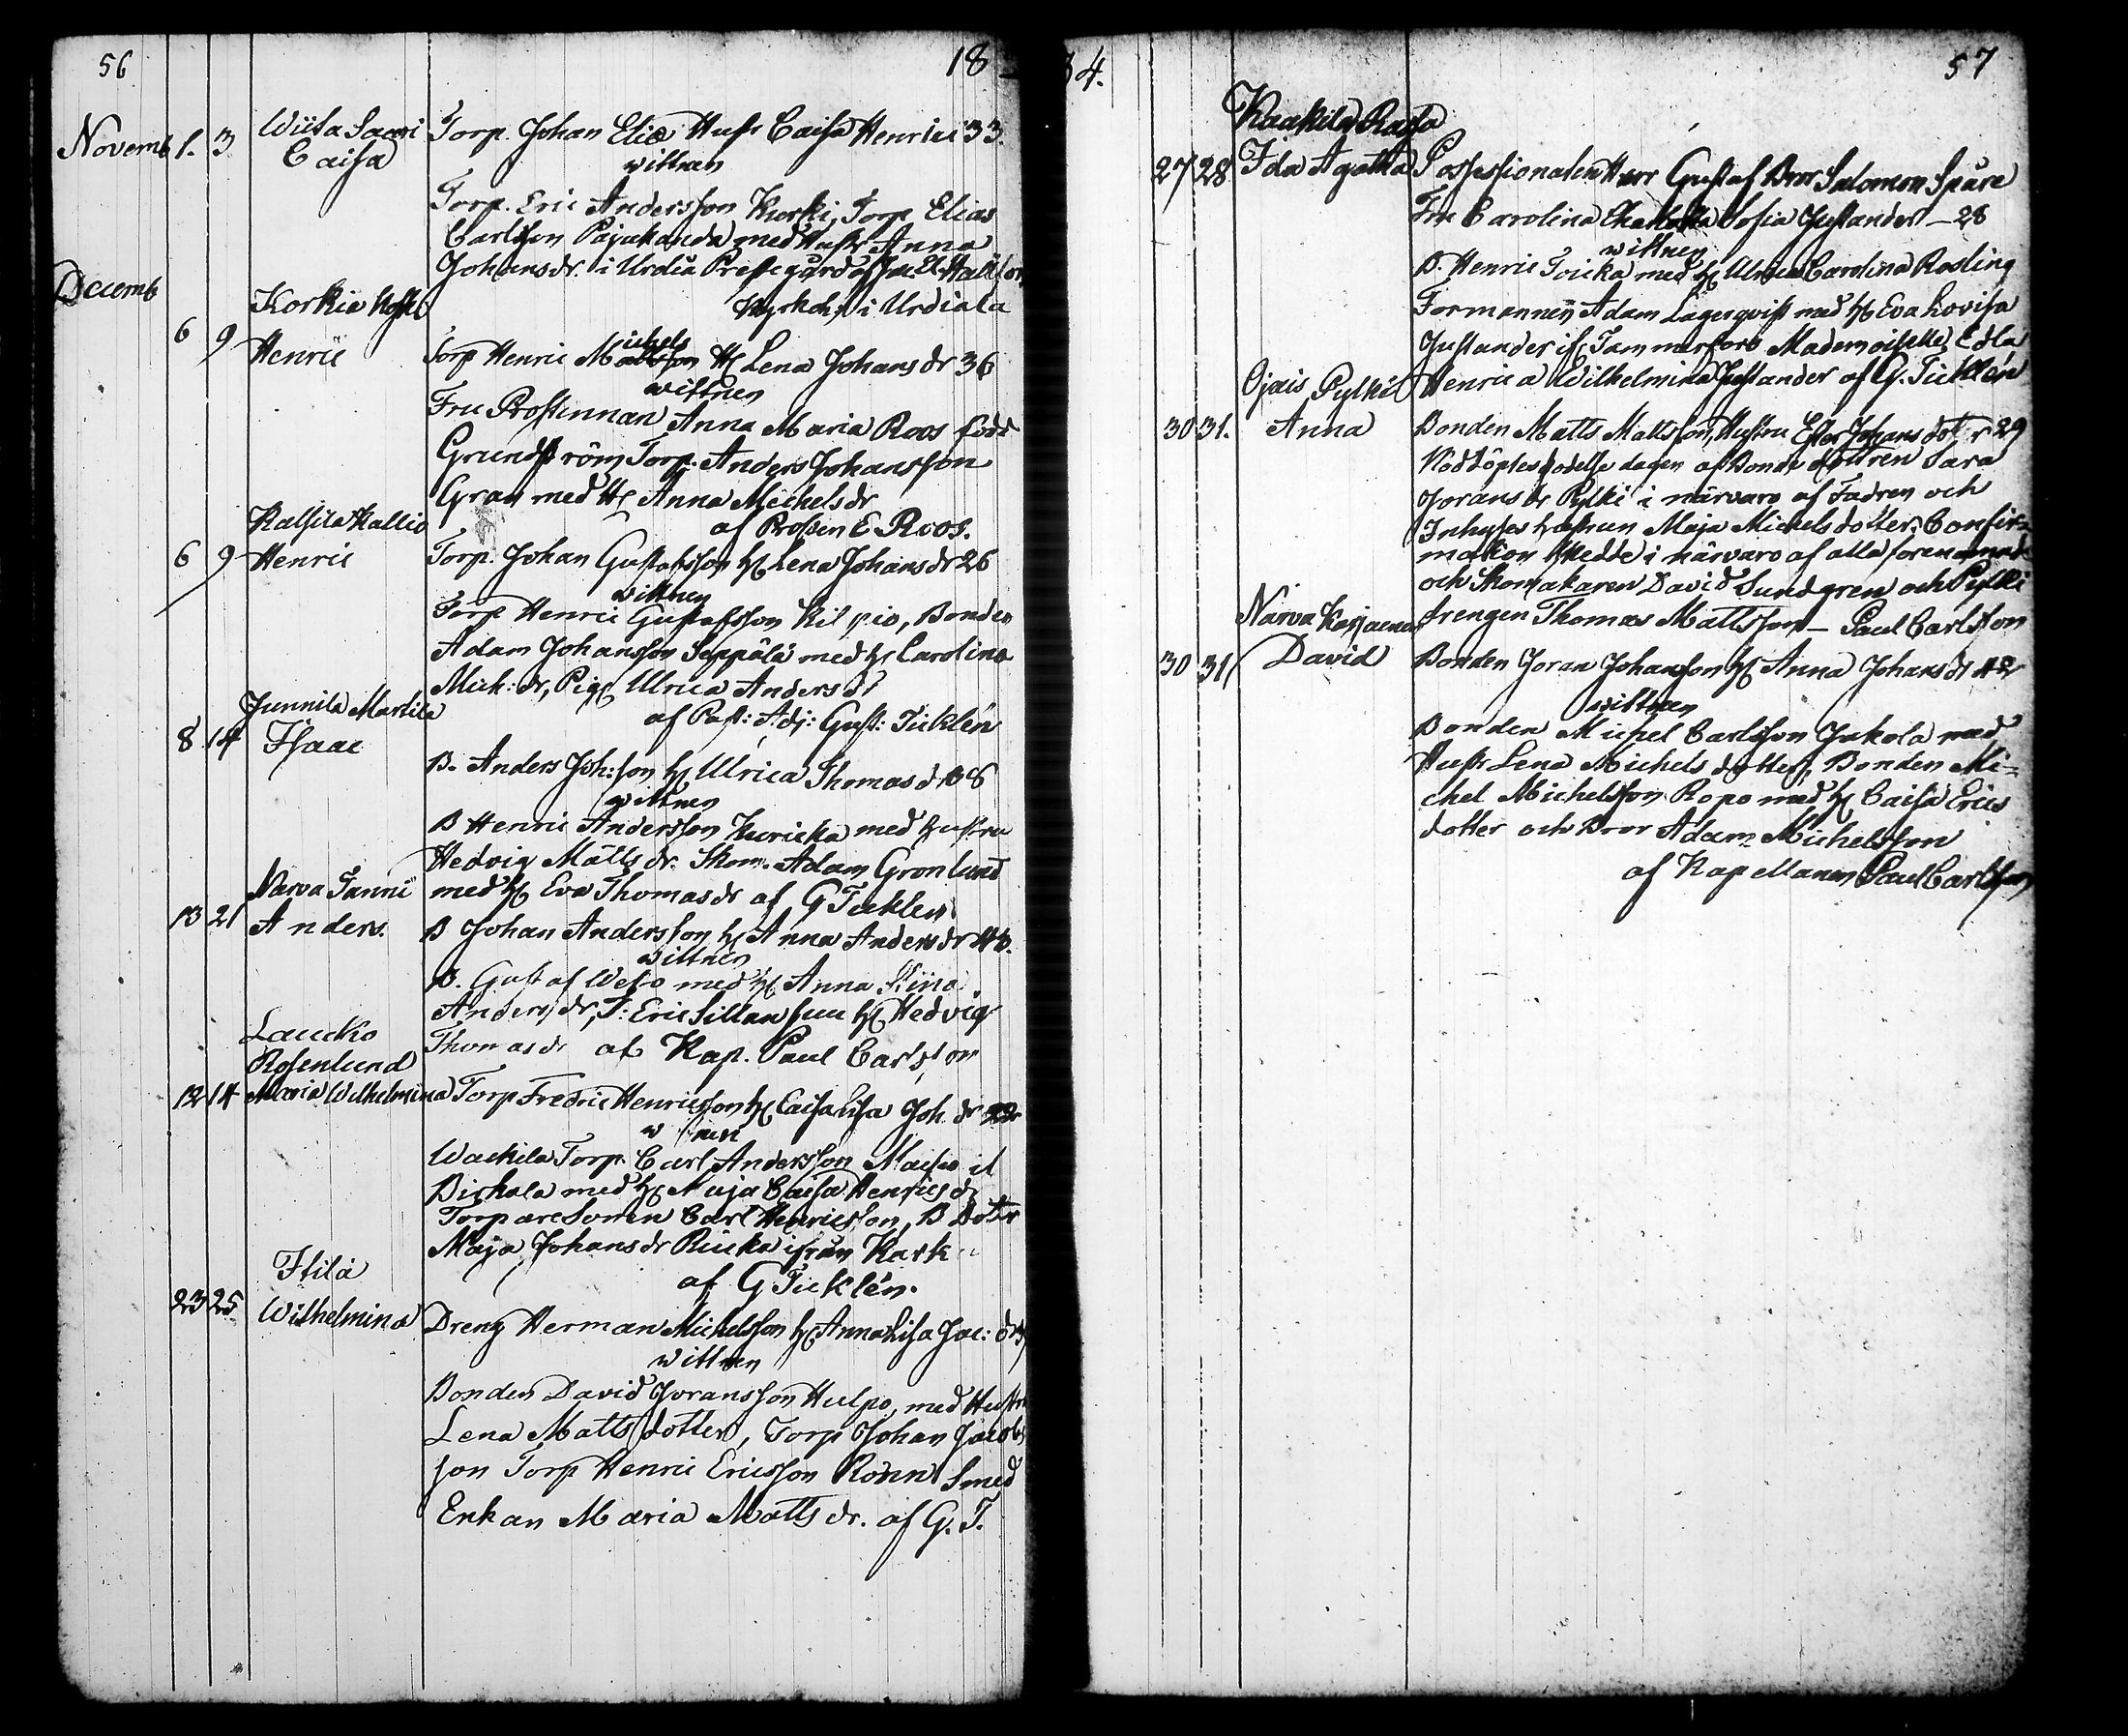 56
18
Novemb 1. 3 Wiisa Saari Torp. Johan Elia Hustr Caisa Henrici 33.
Caisa
wittnen
Torp. Eric Andersson Kurki, Torp Elias
Carlsson Pajukanda med Hustr Anna
Johansdr. i Urdia Prestegård af
Kyrkoh: i Urdiala
Decemb
Korkia
6 9 Henric Torp Henric Michelsson H Lena Johansdr 36
wittnen
Fru Prostinnan Anna Maria Roos född
Grundström Torp. Anders Johansson
Gran med H Anna Michelsdr
af Prosten E Roos.
Kalsila Kallio
6 9 Henric Torp. Johan Gustafsson H Lena Johansdr 26
wittnen
Torp Henric Gustafsson Kilpio, Bonden
Adam Johansson Seppälä med H Carolina
Mich: dr, Pig Ulrica Andersdr
af Past: Adj: Gust: Ticklén
Junnila Martila
8 14 Isaac
B. Anders Joh:son H Ulrica Thomasdr 36
wittnen
B Henric Andersson Kuricka med Hustru
Hedvig Mattsdr. Skom. Adam Gronlund
med H Eva Thomasdr af G Ticklen
Narva Janni
13 21 Anders. B Johan Andersson H Anna Andersdr
wittnen
B. Gustaf Weso med H Anna Stina
Andersdr, T: Eric Sillansuu H Hedvig
Thomasdr af Kap. Paul Carlson
Laucko
Rosenlund
12 14 Maria Wilhelmina Torp Fredric Henricsson H Caisa Lisa Joh dr 22
Wackila Torp. Carl Andersson
med H Maja Caisa Henricsdr
Torpare Sonen Carl Henricsson, B Dottr
Maja Johansdr Ricka ifrån Kark
af G Ticklén.
Itila
23 25. Wilhelmina Dreng Herman Michelsson H Anna Lisa Jac: dr
wittnen
Bonden David Joransson Hulpo, med Hustr
Lena Matts dotter, Torp Johan Jacobs
son Torp Henric Ericsson Rönn Smed
Enkan Maria Matts dr. af G. T.
34.
57
Kaakila Rassa
27 28 Ida Agatha Possessionaten Herr Gustaf Bror Salomon Spåre
Fru Carolina Charlotta Sofia Justander - 28
wittnen
B. Henric Toicka med H Ulrica Carolina Rosling
Formannen Adam Lagerqvist med H Eva Lovisa
Justander if Tammerfors Mademoiselle Edla
Henrica Wilhelmina Justander af G. Ticklén
Ojais Pylki
30 31. Anna Bonden Matts Mattsson, Hustru Ester Johans dotr 29
Nöddöptes fodelse dagen af Bonde dottren Sara
Jorans dr Pylki i närvaro af Fadren och
Inhyses hustrun Maja Michels dotter, Confir=
mation skedde i närvaro af alla förenamnde
och Skomakaren David Sundgren och Pylki
drengen Thomas Mattsson - Paul Carlsson
Narva
30 31 David Bonden Joran Johansson H Anna Johansdr 42
wittnen
Bonden Michel Carlsson Jukola med
Hustr Lena Michels dotter, Bonden Mi=
chel Michelsson Ropo med H Caisa Erics
dotter och Bror Adam Michelsson
af Kapellanen Paul Carlsson